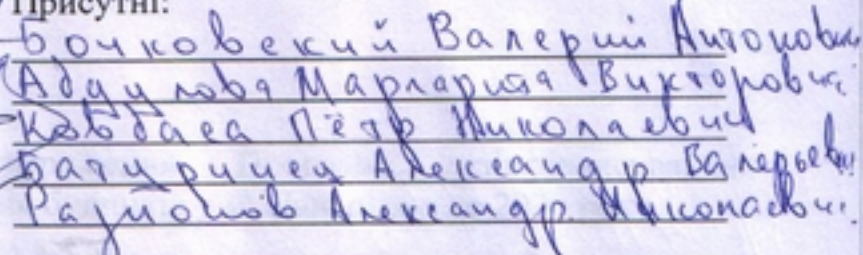 Присутні:
Бочковский Валерий Антонович
Абдулова Маргарита Викторовна
Ковбаса Пётр Николаевич
Батуринец Александр Валерьевич
Александр Николаевич